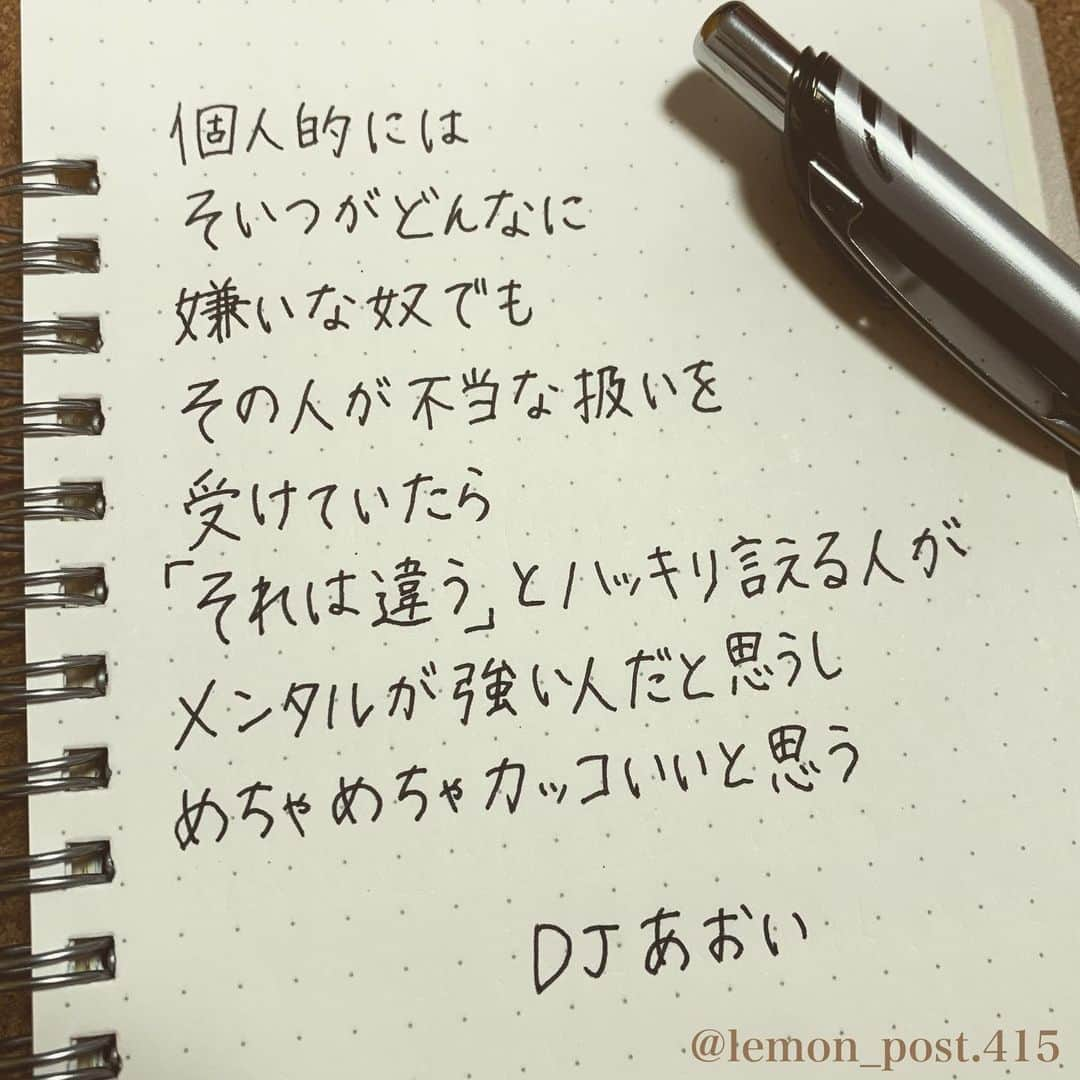 個人的には
そいつがどんなに
嫌いな奴でも
その人が不当な扱いを
受けていたら
「それは違う」とハッキリ言える人が
メンタルが強い人だと思うし
めちゃめちゃカッコいいと思う
DJあおい
@lemon_post.415